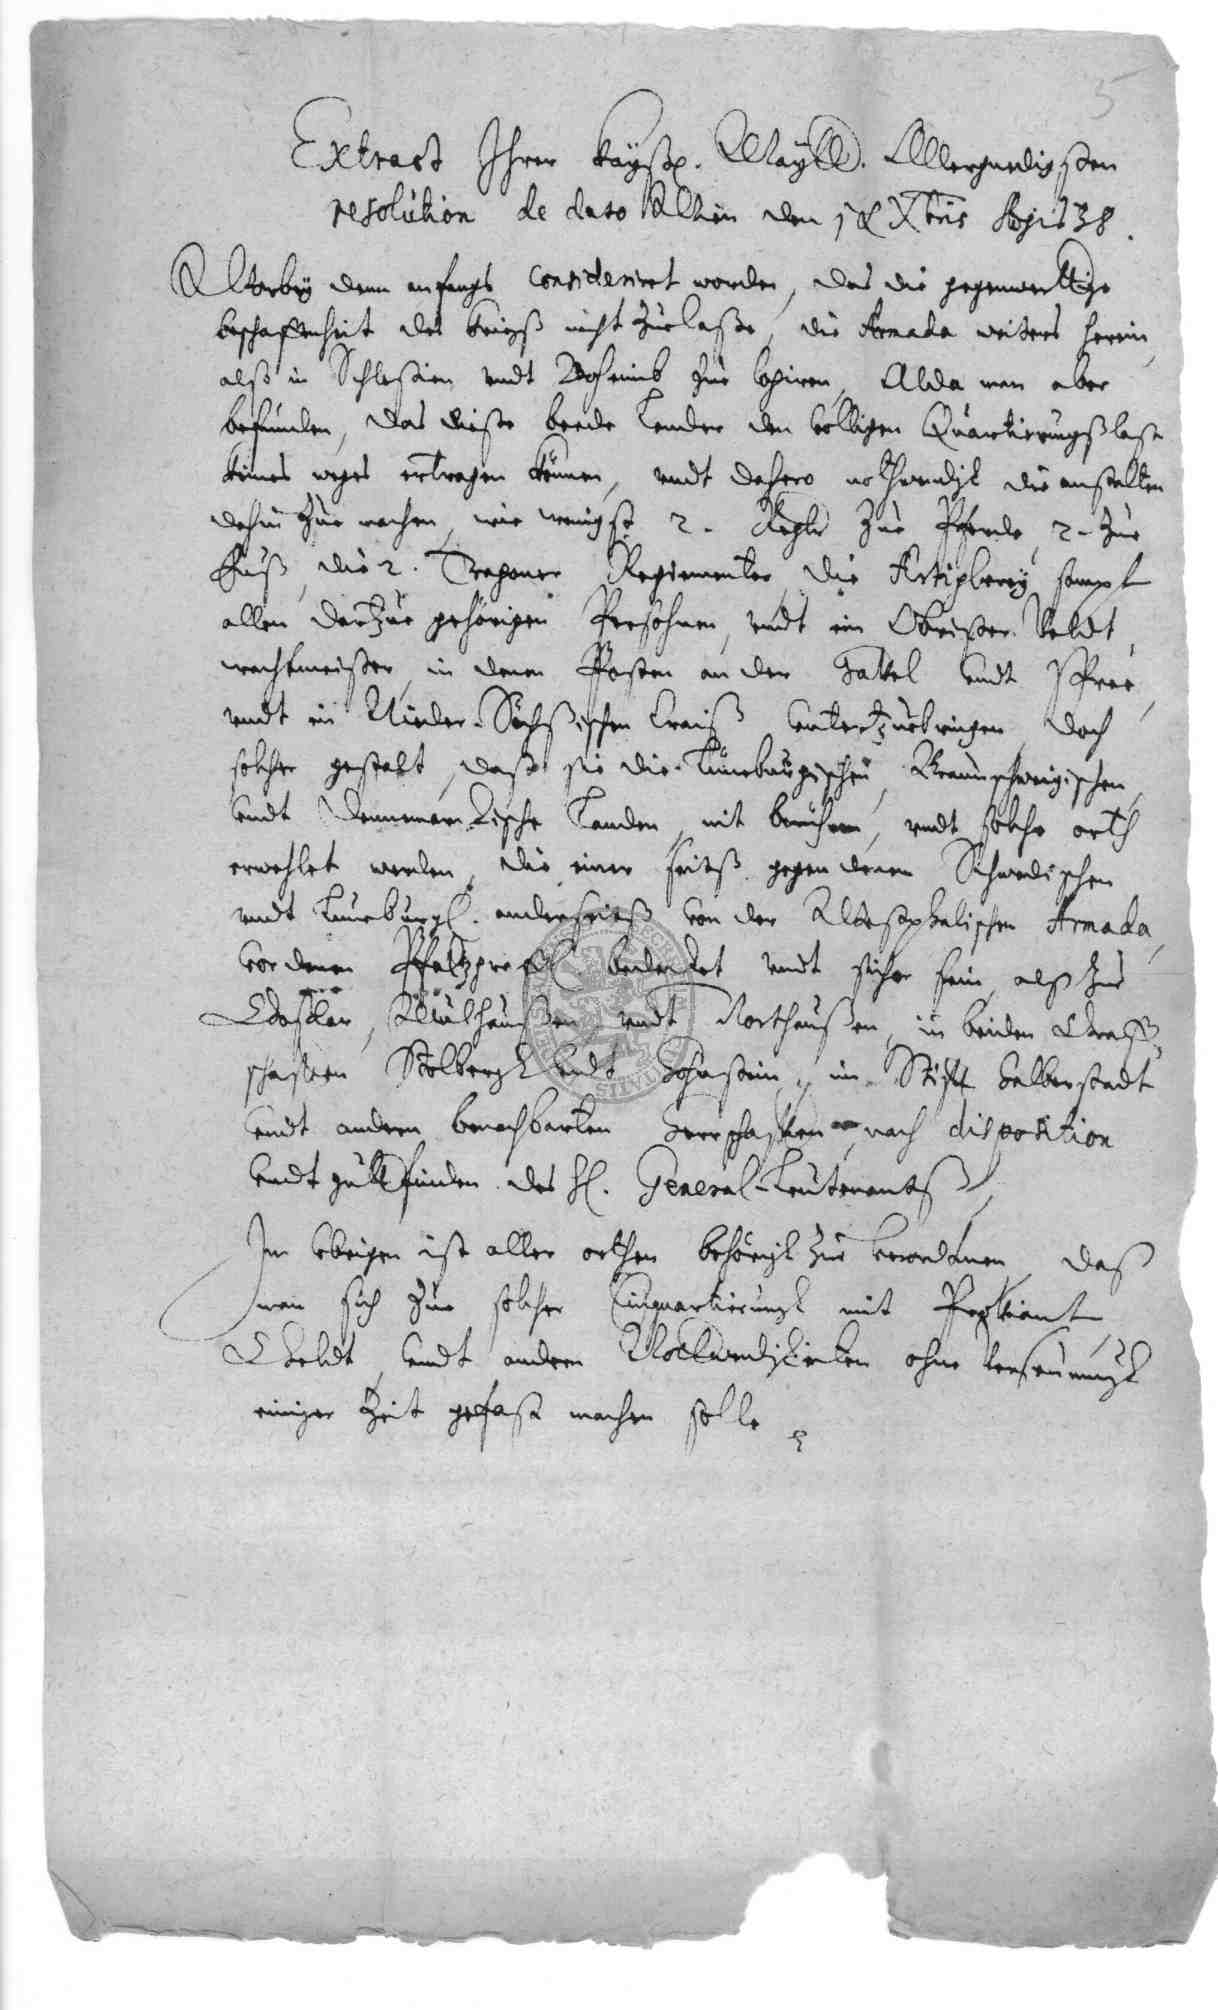 5
Extract Ihrer Kayßl. Maytt. Allergnedigsten
resolution de dato Wien den Xbris 38.
Worbey dann anfangs consideriret worden, das die gegenwerttige
beschaffenheit des Kriegß nicht zuelaße, die Armada weiters herein,
alß in Schlesien undt Boheimb zue logiren, Alda man aber
befunden, das dieße beede Lender den völligen Quartierungßlast
keines weges ertragen können, undt dahero nothwendigk die anstalten
dahin zue machen, wie wenigst 2. Regtr zue Pferde, 2. zue
Fuß, die 2. Tragoner Regimenter, die Artiglerey sampt
allen darzue gehörigen Persohnen, undt ein Obrister Veldt
wachtmeister, in denen Posten an der Havel undt Spree,
undt in Nieder-Sächßischen Craiß unterzuebringen, doch
solcher gestalt, daß sie die Lüneburgischen, Braunschweigischen,
undt Dennemarkische Landen, nit berühren, undt solche orth
erwehlet werden, die einer seitß gegen denen Schwedischen
undt Luneburgl. anderseitß von der Westphalischen Armada,
vor denen Pfaltzgrefl. bedecket undt sicher sein, alß zue
Goslar, Mülhaußen undt Northaußen, in beiden Graff-
schafften Stolbergk undt Hohnstein, im Stifft Halberstadt
undt andern benachbarten Herrschafften, nach disposition
undt guttfinden des H. General-Leutenantß,
Im übrigen ist aller orthen behörigk zue verordtnen, daß
man sich zue solcher Einquartierungk mit Proviant,
Geldt undt andern Nottwendigkeiten ohne verseumungk
einiger Zeit gefast machen solle